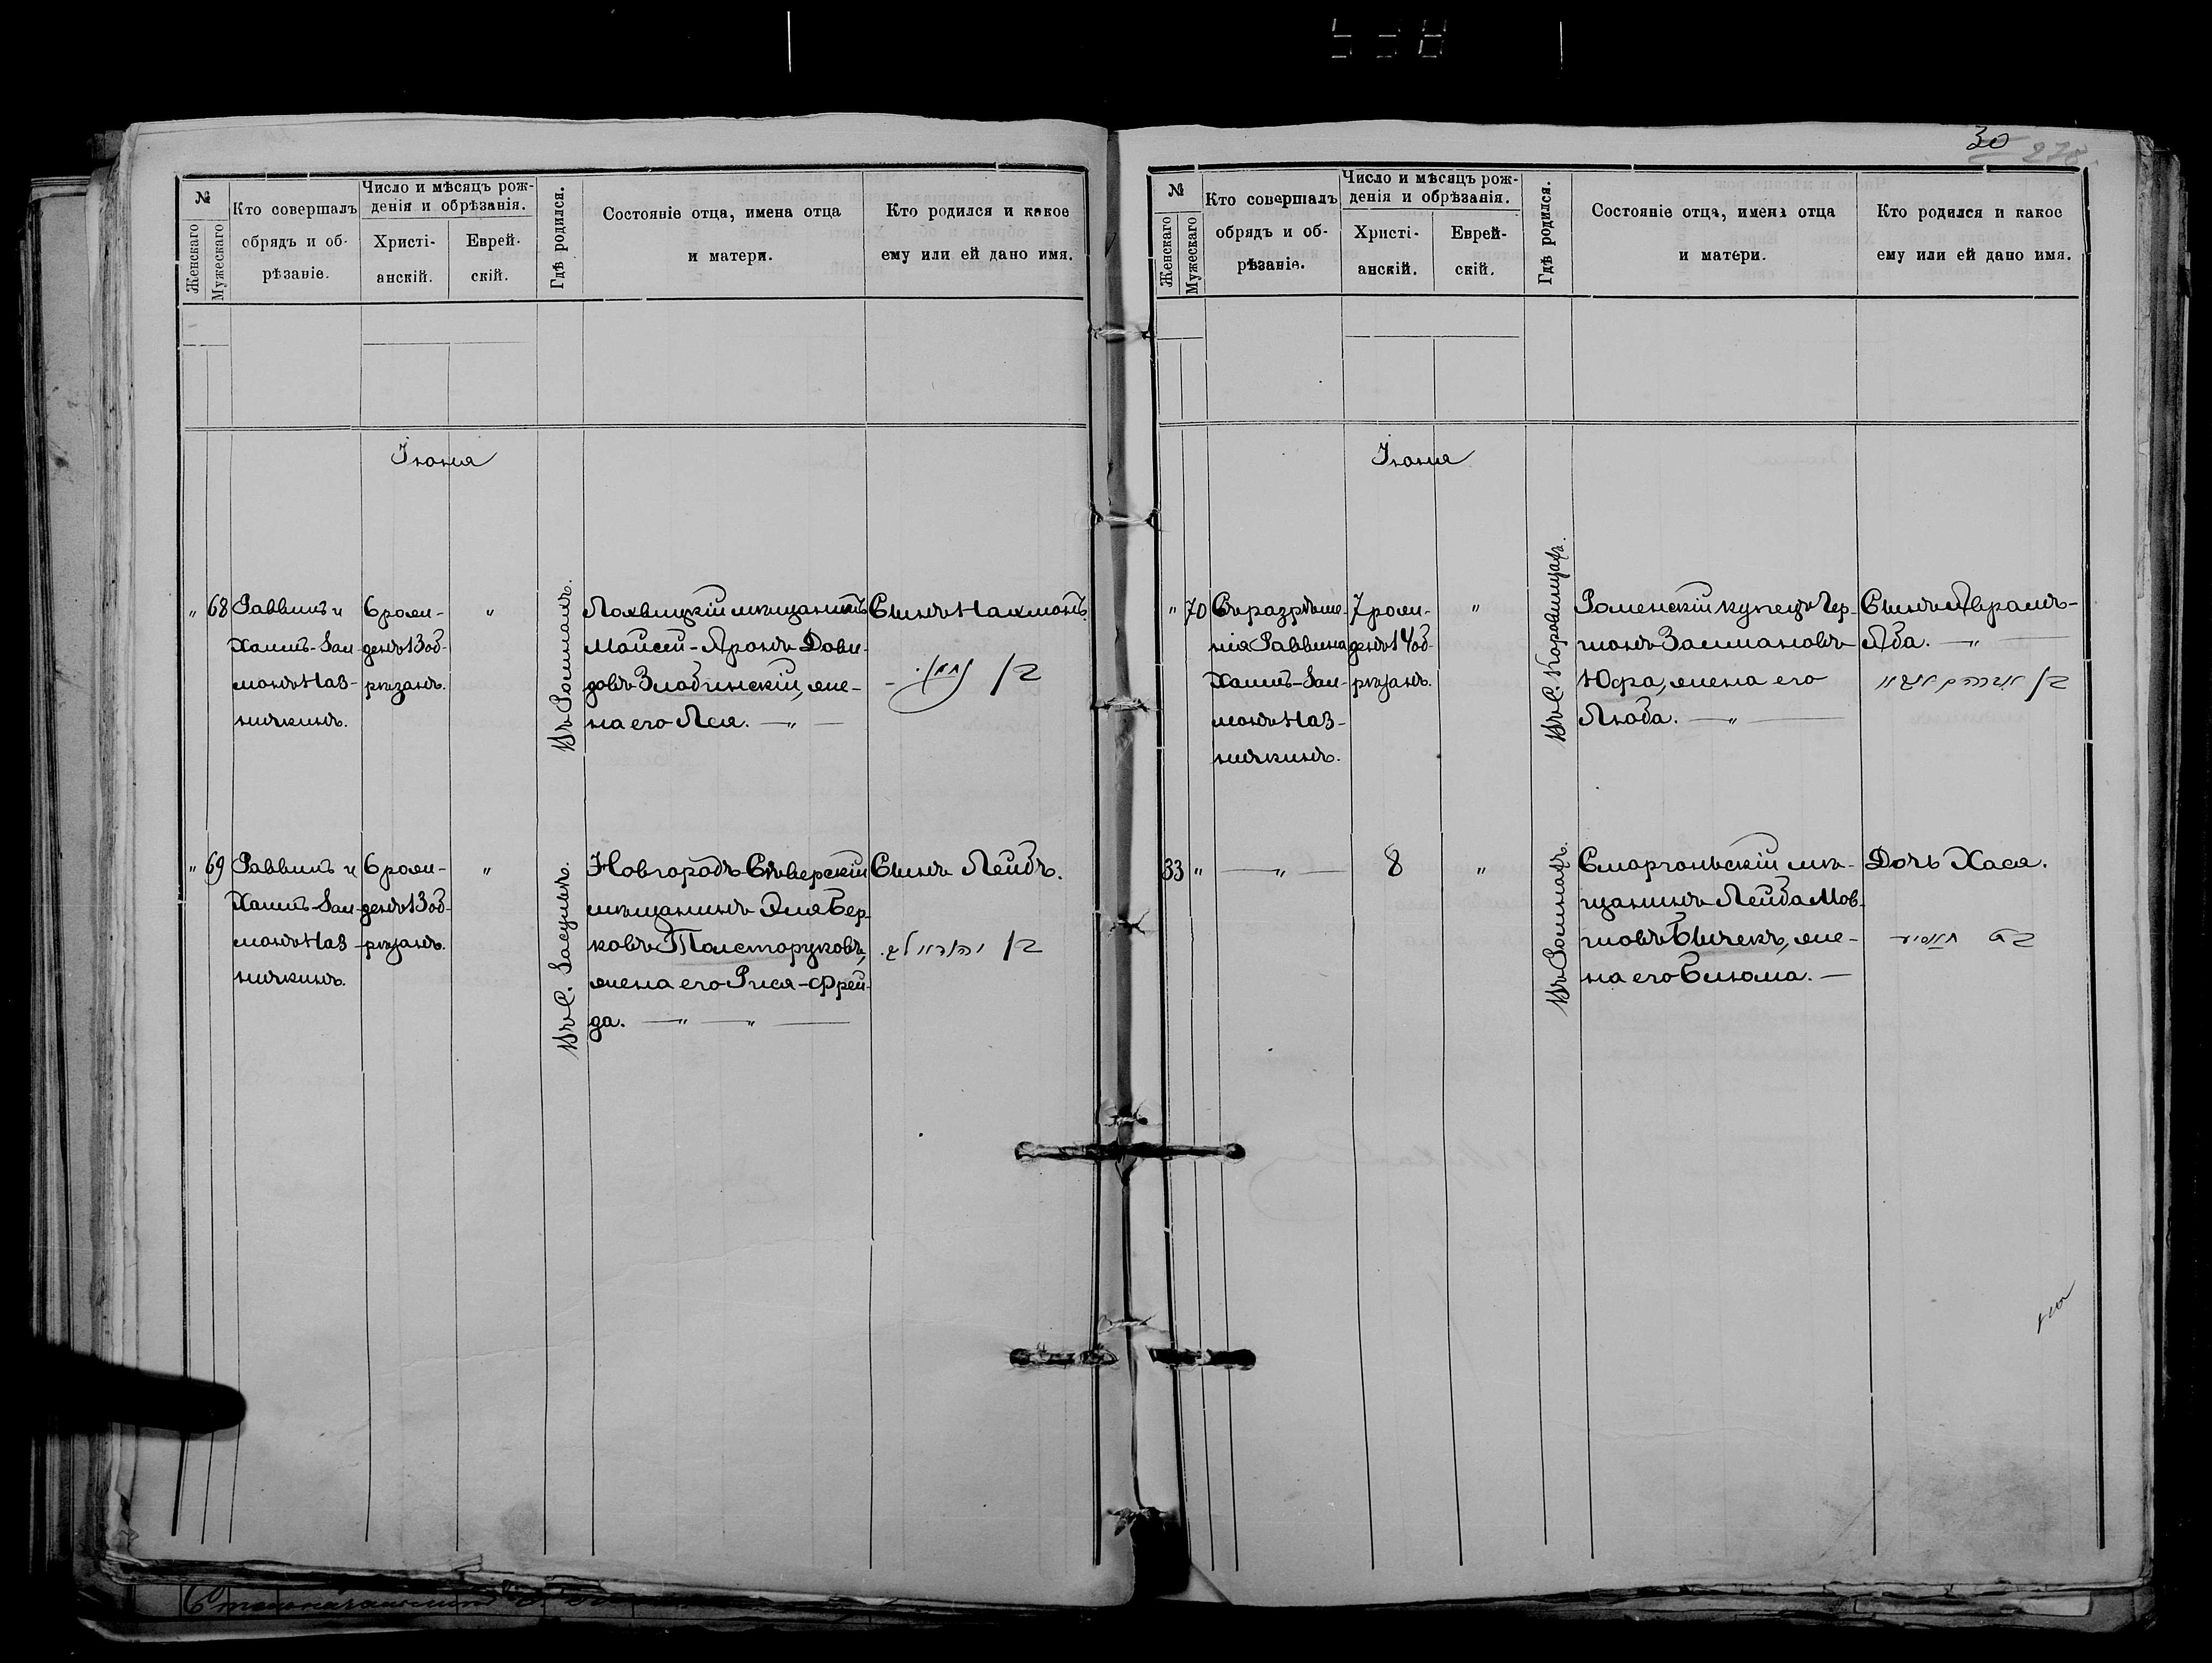 30
278.
№
Женскаго
Мужескаго
Кто совершалъ
обрядъ и об-
рѣзаніе.
Число и мѣсяцъ рож-
денія и обрѣзанія.
Христі-
анскій.
Еврей-
скій.
Гдѣ родился.
Состояніе отца, имена отца
и матери.
Кто родился и какое
ему или ей дано имя.
Іюня
" 68
Раввинъ и
Хаимъ-Зал-
монъ Наз-
нички­нъ.
6 рож-
денъ 13 об-
рѣзанъ.
"
Въ Ромнахъ.
Лохвицкій мѣщанинъ
Мойсей-Аронъ Дови-
довъ Злобинскій, же-
на его Лея. —"—
Сынъ Нахмонъ.
בן נחמן.
" 69
Раввинъ и
Хаимъ-Зал-
монъ Наз-
ничкинъ.
6 рож-
денъ 13 об-
рѣзанъ.
"
Въ С. Засульѣ.
Новгородъ-Сѣверскій
мѣщанинъ Эля Бер-
ковъ Толсторуковъ,
жена его Рися-Фрей-
да. —"—"—
Сынъ Лейбъ.
בן
№
Женскаго
Мужескаго
Кто совершалъ
обрядъ и об-
рѣзаніе.
Число и мѣсяцъ рож-
денія и обрѣзанія.
Христі-
анскій.
Еврей-
скій.
Гдѣ родился.
Состояніе отца, имена отца
и матери.
Кто родился и какое
ему или ей дано имя.
Іюня
" 70
Съ разрѣше-
нія Раввина
Хаимъ-Зал-
монъ Наз-
ничкинъ.
7 рож-
денъ 14 об-
рѣзанъ.
"
Въ С. Коровинцахъ.
Роменскій купецъ Гер-
шонъ Залмановъ
Юфа, жена его
Люба. —"—
Сынъ Аврамъ-
Аба. —"—
בן אברהם אבא
33 "
—"—
8
"
Въ Ромнахъ.
Сморгоньскій мѣ-
щанинъ Лейба Мов-
шовъ Бычекъ, же-
на его Блюма. —
Дочь Хася.
בת חאסיע